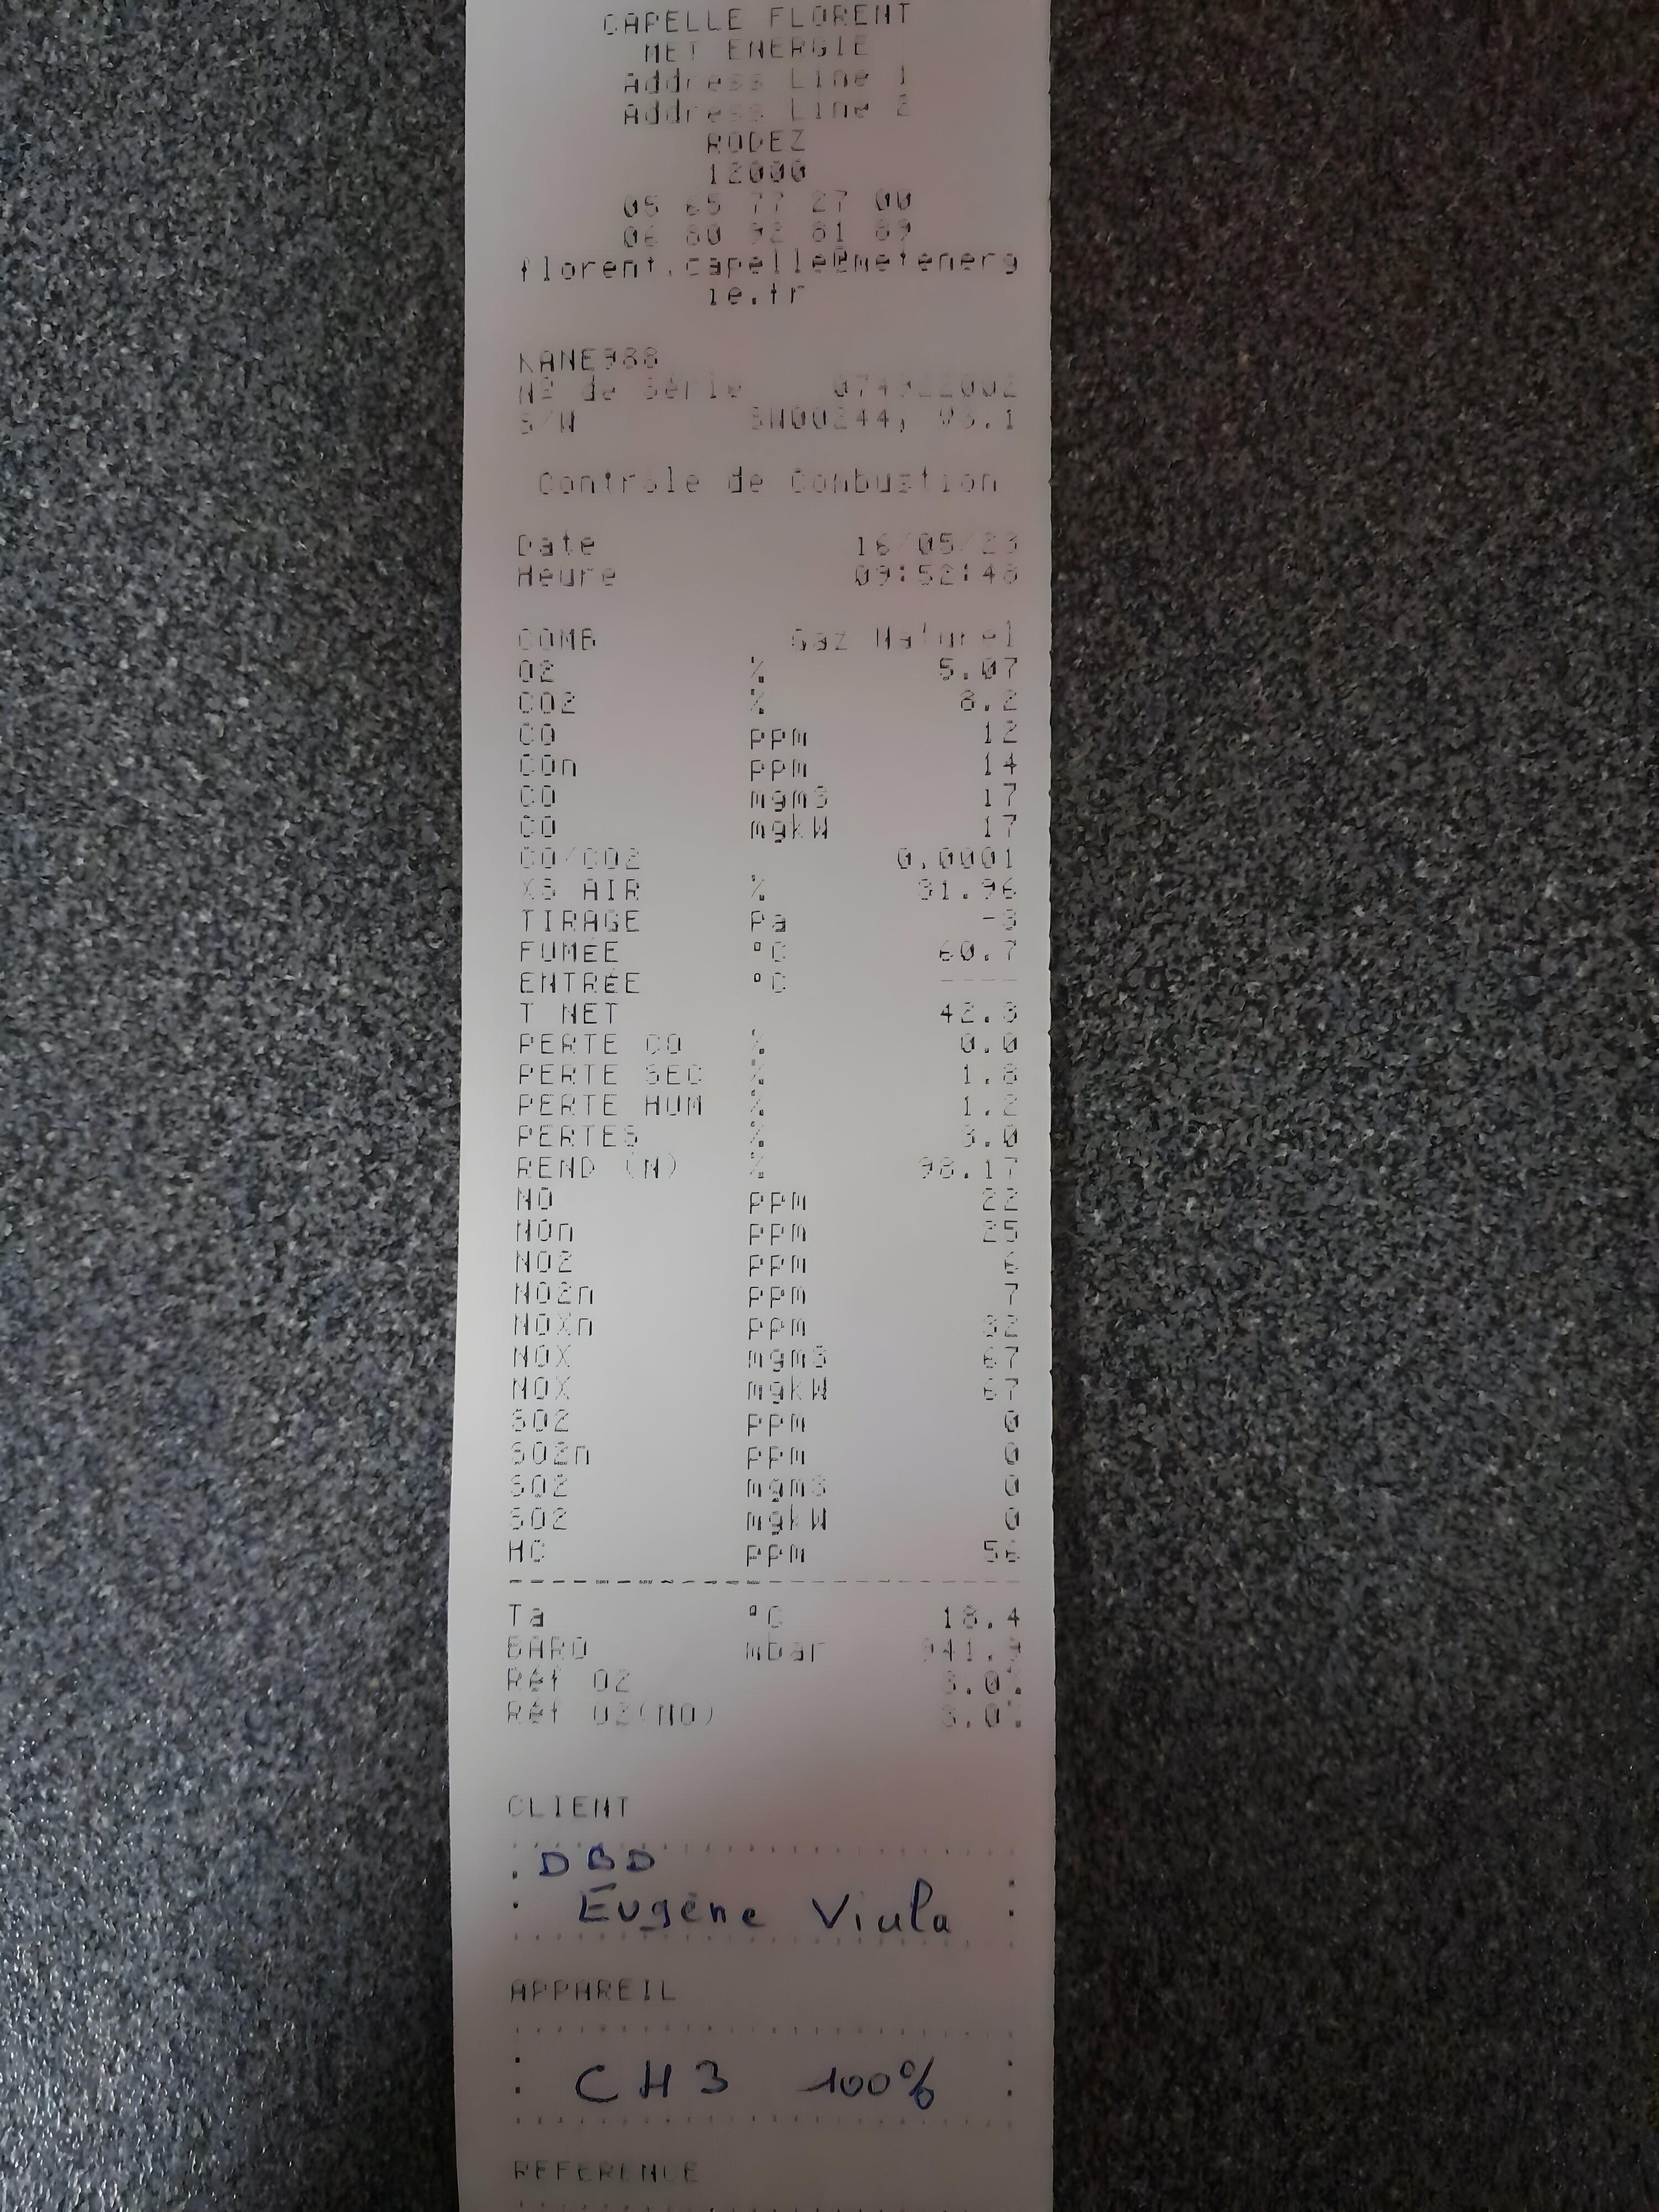 CAPELLE FLORENT
MET ENERGIE
Address Line 1
Address Line 2
RODEZ
12000
05 65 77 27 00
06 80 92 81 89
florent.capelle@metenerg
ie.fr
KANE988
Nº de Série
S/W SW00244, V3.1
Contrôle de Combustion
Date 16/05/23
Heure 09:52:48
COMB Gaz Naturel
O2 % 5.07
CO2 % 8.2
CO ppm 12
COn ppm 14
CO mgm3 17
CO mgkW 17
CO/CO2 0.0001
XS AIR % 31.96
TIRAGE Pa -3
FUMÉE °C 60.7
ENTRÉE °C ----
T NET 42.3
PERTE CO % 0.0
PERTE SEC % 1.8
PERTE HUM % 1.2
PERTES % 3.0
REND (N) % 98.17
NO ppm 22
NOn ppm 25
NO2 ppm 6
NO2n ppm 7
NOXn ppm 32
NOX mgm3 67
NOX mgkW 67
SO2 ppm 0
SO2n ppm 0
SO2 mgm3 0
SO2 mgkW 0
HC ppm 56
Ta °C 18.4
BARO mbar 941.9
Réf O2 3.0%
Réf O2(NO) 3.0%
CLIENT
DBD
Eugène Viala
APPAREIL
CH3 100%
REFERENCE